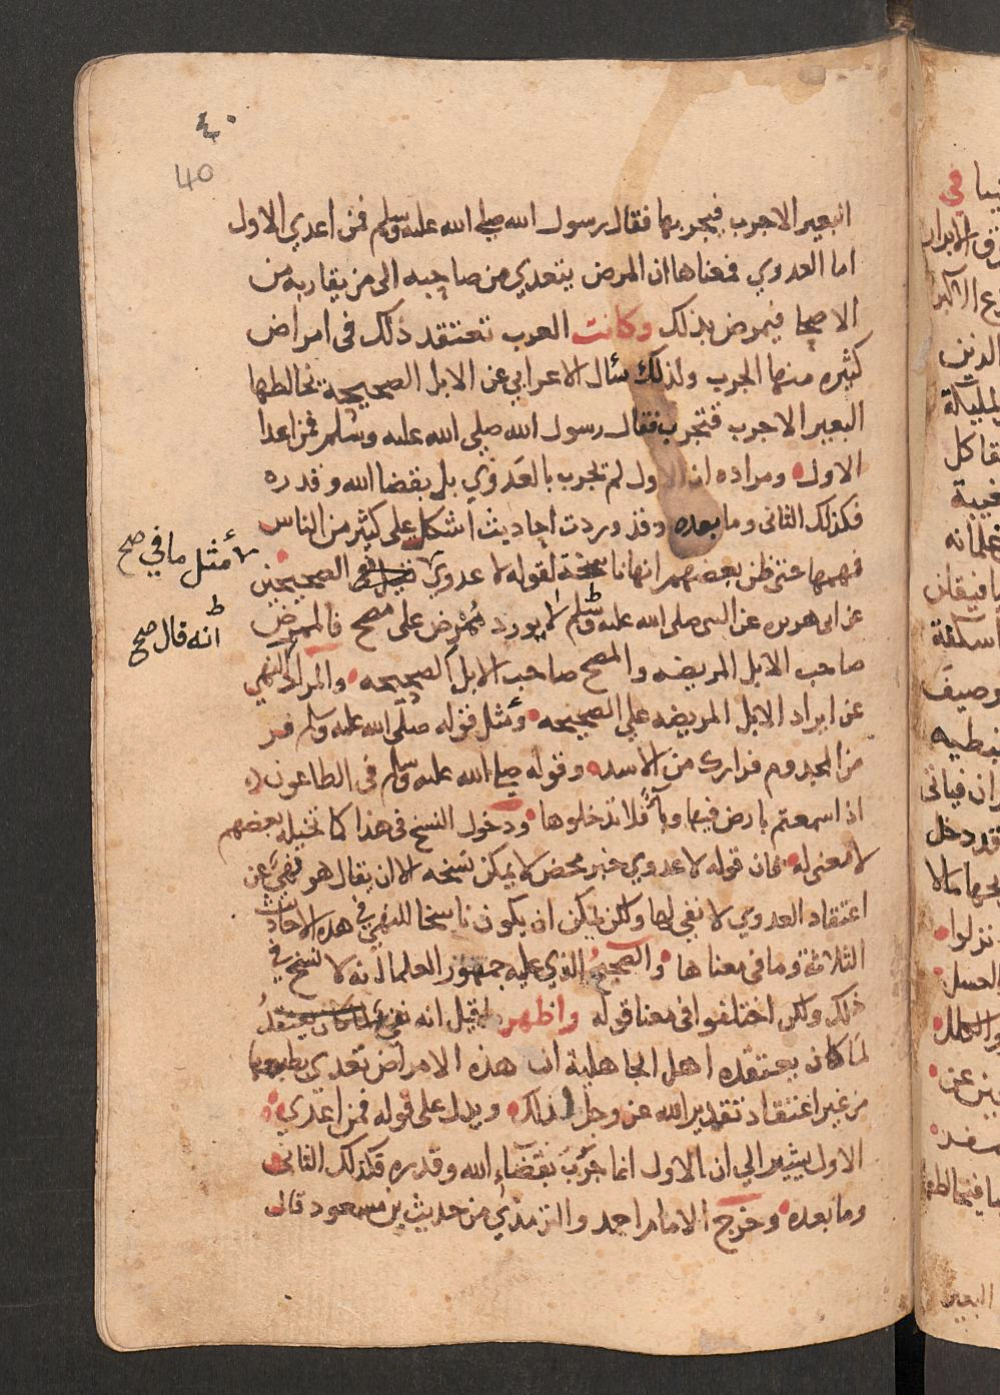 ٤٠
40
البعير الاجرب فيجربها فقال رسول الله صلي الله عليه وسلم فمن اعدي الاول
اما العدوي فمعناها ان المرض يتعدي من صاحبه الى من يقاربه من
الاصحا فيمرض بذلك وكانت العرب تعتقد ذلك في امراض
كثيره منها الجرب ولذلك سئال الاعرابي عن الابل الصحيحة يخالطها
البعير الاجرب فتجرب فقال رسول الله صلي الله عليه وسلم فمن اعدا
الاول ومراده ان الاول لم تجرب بالعدوي بل بقضا الله وقدره
فكذلك الثاني وما بعده وقد وردت احاديث اشكل علي كثير من الناس
فهمها حتى ظن بعضهم انها ناسخة لقوله لا عدوي الصحيحين
مثل ما في صح
عن ابي هريره عن النبي صلى الله عليه وسلم لا يورد ممرض على مصح فالممرض
انه قال صح
صاحب الابل المريضه والمصح صاحب الابل الصحيحه والمراد النهي
عن ايراد الابل المريضه علي الصحيحه ومثل قوله صلى الله عليه وسلم فر
من المجذوم فرارك من الاسد وقوله صلي الله عليه وسلم في الطاعون
اذا سمعتم بارض فيها وبآ فلا تدخلوها ودخول النسخ في هذا كما تخيله بعضهم
لا معنى له فان قوله لا عدوي خبر محض لا يمكن نسخه الا ان يقال هو نهي عن
اعتقاد العدوي لا نفي لها ولكن يمكن ان يكون ناسخا للنهي في هذه الاحاديث
الثلاثة وما في معناها والصحيح الذي عليه جمهور العلما انه لا نسخ في
ذلك ولكن اختلفوا في معنا قوله واظهر ما قيل انه نفي لما كان يعتقد
لما كان يعتقده اهل الجاهلية ان هذه الامراض تعدي بطبعها
من غير اعتقاد تقدير الله عز وجل لذلك ويدل على قوله فمن اعدي
الاول يشير الي ان الاول انما جرب بقضاء الله وقدره فكذلك الثاني
وما بعده وخرج الامام احمد والترمذي من حديث بن مسعود قال
البعير